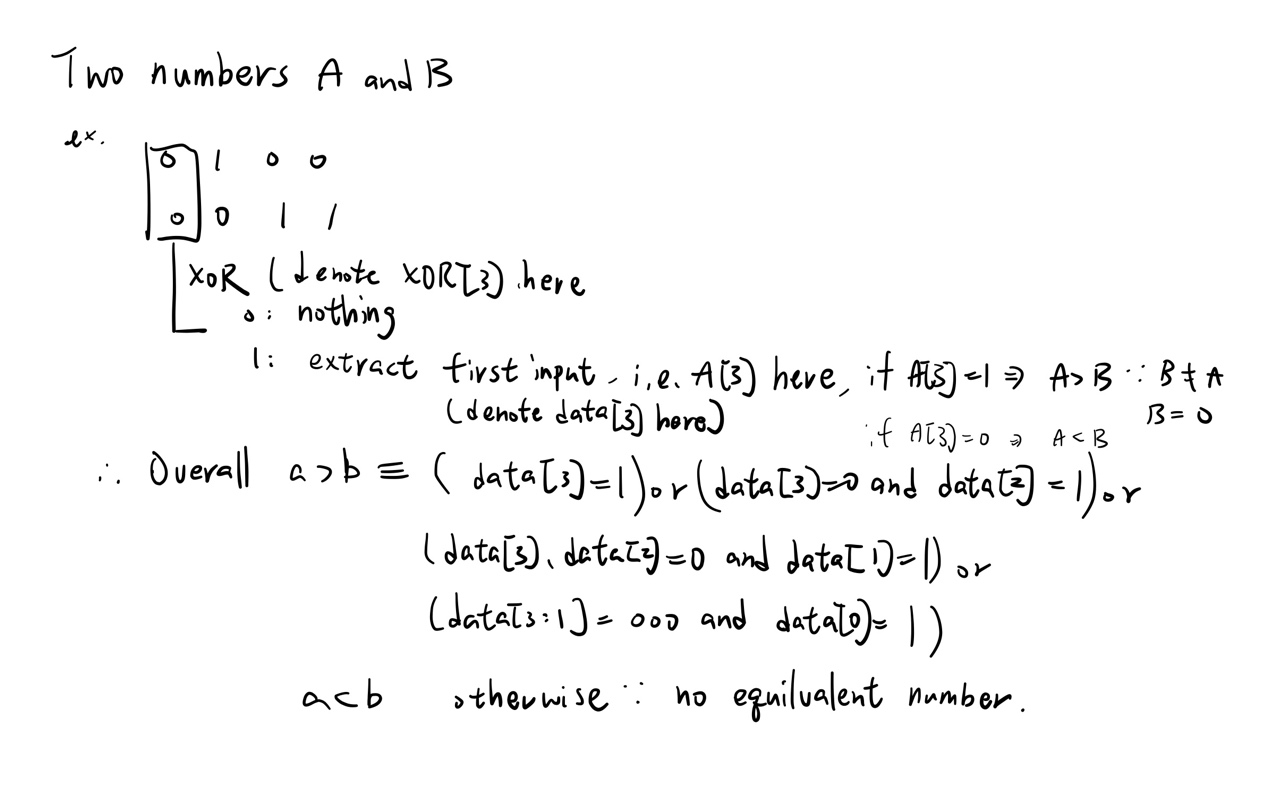 Two numbers A and B
ex.
0 1 0 0
0 0 1 1
XOR (denote XOR[3]) here
0: nothing
1: extract first input, i.e. A[3] here, if A[3]=1 ⇒ A>B ∵ B≠A
(denote data[3] here) B=0
if A[3]=0 ⇒ A<B
∴ Overall a>b ≡ (data[3]=1) or (data[3]=0 and data[2]=1) or
(data[3], data[2]=0 and data[1]=1) or
(data[3:1]=000 and data[0]=1)
a<b otherwise ∵ no equilvalent number.